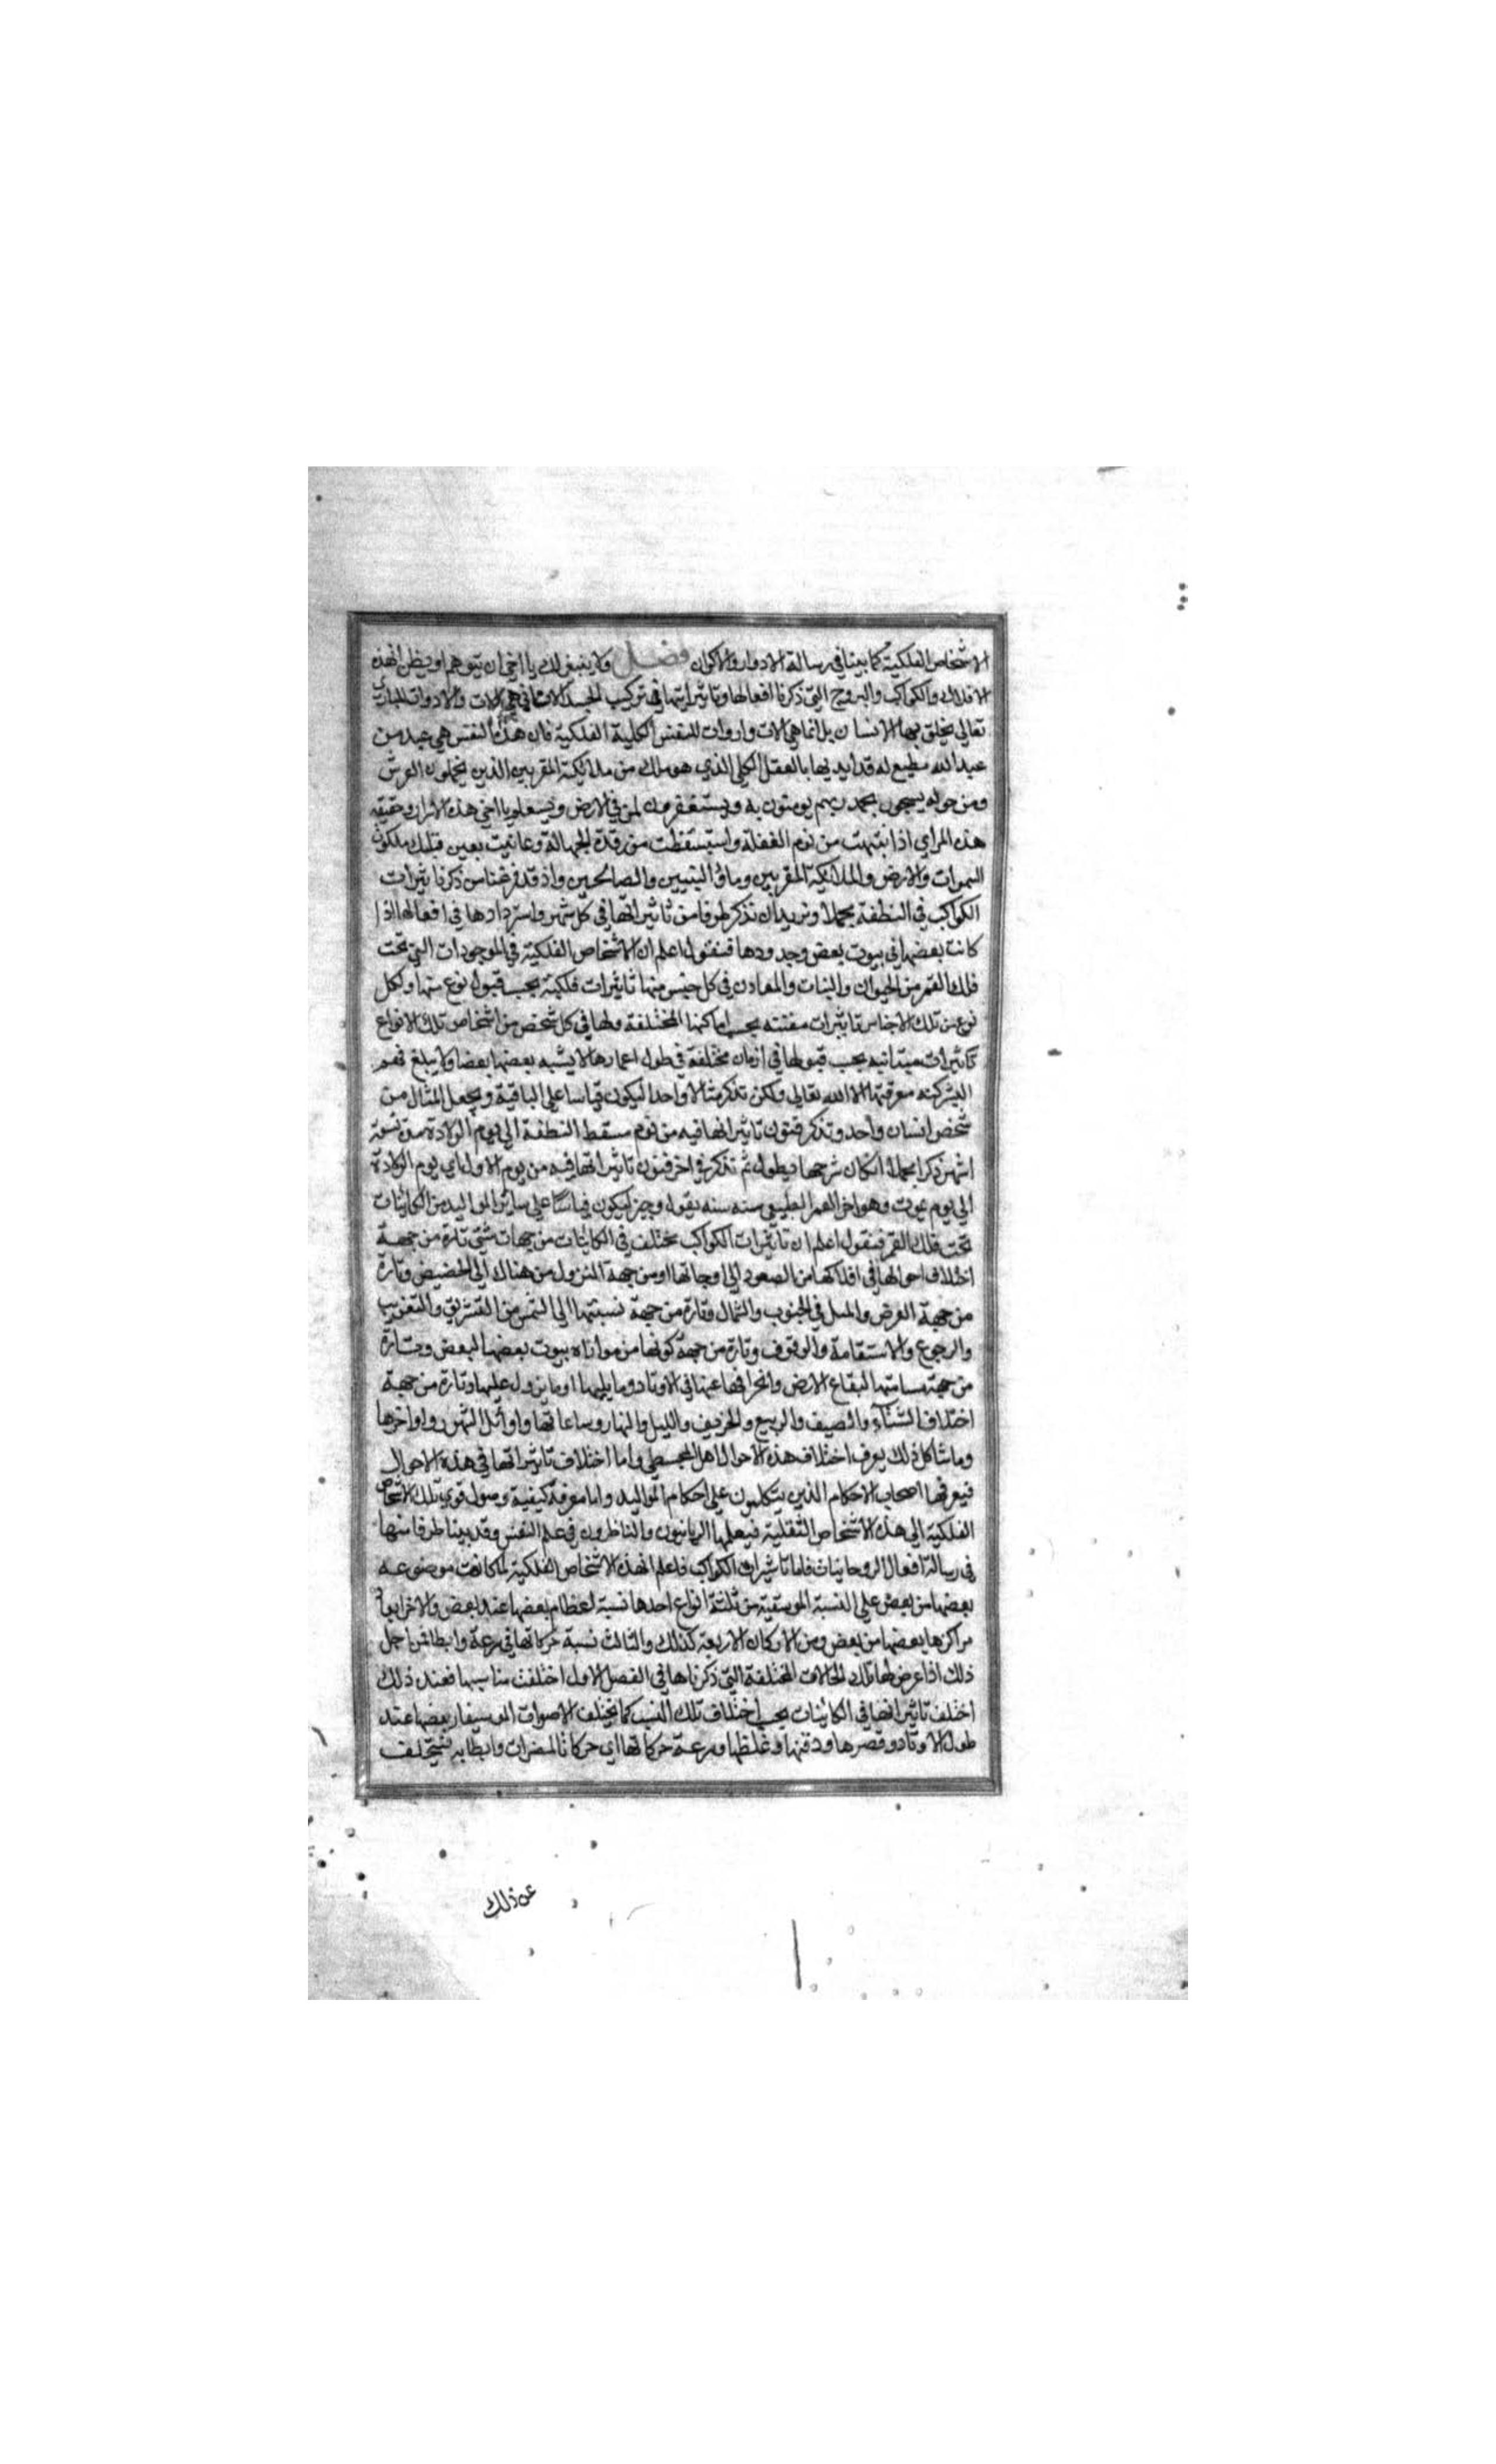 الاشخاص الفلكية كما بينا في رسالة الادوار والاكوان فصل ولا ينبغي لك يا اخي ان تتوهم او تظن ان هذه
الافلاك والكواكب والبروج التي ذكرنا افعالها وتاثيراتها في تركيب الجسد الانساني هي الات والادوات للباري
تعالى يخلق بها الانسان بل انما هي الات وادوات للنفس الكلية الفلكية فان هذه النفس هي عبد من
عبيد الله مطيع له قد ايديها بالعقل الكلي الذي هو ملك من ملائكة المقربين الذين يحملون العرش
ومن حوله يسبحون بحمد ربهم يومنون به ويستغفرون لمن في الارض وستعلم يا اخي هذه الاسرار وحقيقة
هذه المراي اذا نتبهت من نوم الغفلة واستيقظت من رقدة الجهالة وعاينت بعين قلبك ملكوت
السموات والارض والملائكة المقربين وماوى النبيين والصالحين واذ قد فرغنا من ذكر تاثيرات
الكواكب في النطفة مجملا ونريد ان نذكر طرفا من تاثيراتها في كل شهر واسترداوها في افعالها اذا
كانت بعضها في بيوت بعض وحدودها فنقول اعلم ان الاشخاص الفلكية في الموجودات التي تحت
فلك القمر من الحيوان والنبات والمعادن في كل جنس منها تاثيرات فلكية بحسب قبول نوع منها ولكل
نوع من تلك الاجناس تاثيرات مفننه بحسب اماكنها المختلفة ولها في كل شخص من اشخاص تلك الانواع
تاثيرات بحسب قبولها في ازمان مختلفة في طول اعمارها لا يشبه بعضها بعضا ولا يبلغ فهم
البشر كنه معرفتها الا الله تعالى ولكن نذكر مثالا واحدا ليكون قياسا على الباقية ونجعل المثال من
شخص انسان واحد ونذكر فنون تاثيراتها فيه من يوم مسقط النطفة الى يوم الولادة مدة تسعة
اشهر ذكرا مجملا اذ كان شرحها يطول ثم نذكر في اخر فنون تاثيراتها فيه من يوم الاول اي يوم الولادة
الى يوم يموت وهو اخر العمر الطبيعي سنه سنه بقول وجيز ليكون قياسا على سائر المواليد من الكائنات
تحت فلك القمر فنقول اعلم ان تاثيرات الكواكب يختلف في الكائنات من جهات شتى تارة من جهة
اختلاف احوالها في افلاكها من الصعود الى اوجاتها او من جهة النزول من هناك الى الحضيض وتارة
من جهة العرض والميل في الجنوب والشمال وتارة من جهة نسبتها الى الشمس من التشريق والتغريب
والرجوع والاستقامة والوقوف وتارة من جهة كونها من موازاه بيوت بعضها لبعض وتارة
من جهة مسامتها لبقاع الارض وانحرافها عنها في الاوتاد وما يليها او ما يزول عليها وتارة من جهة
اختلاف الشتاء والصيف والربيع والخريف والليل والنهار وساعاتها واوائل الشهور واواخرها
وما شاكل ذلك يعرف اختلاف هذه الاحوال اهل المجسطي واما اختلاف تاثيراتها في هذه الاحوال
فيعرفها اصحاب الاحكام الذين يتكلمون على احكام المواليد واما معرفة كيفية وصول قوى تلك الاشخاص
الفلكية الى هذه الاشخاص الثقلية فيعلمها الربانيون والناظرون في علم النفس وقد بينا طرفا منها
في رسالة افعال الروحانيات فاما تاثيرات الكواكب فاعلم ان هذه الاشخاص الفلكية لما كانت موضوعه
بعضها من بعض على النسبة الموسيقية من ثلثة انواع احدها نسبة اعظام بعضها عند بعض والاخر ابعاد
مراكزها بعضها من بعض ومن الاركان الاربعة كذلك والثالث نسبة حركاتها في سرعة وابطا فمن اجل
ذلك اذا عرض لها تلك الحالات المختلفة التي ذكرناها في الفصل الاول اختلفت مناسبها فعند ذلك
اختلف تاثيراتها في الكائنات بحسب اختلاف تلك النسب كما يختلف الاصوات الموسيقار بعضها عند
طول الاوتاد وقصرها ودقتها وغلظها وسرعة حركاتها اي حركات المضرات وابطا به فيتخلف
عن ذلك